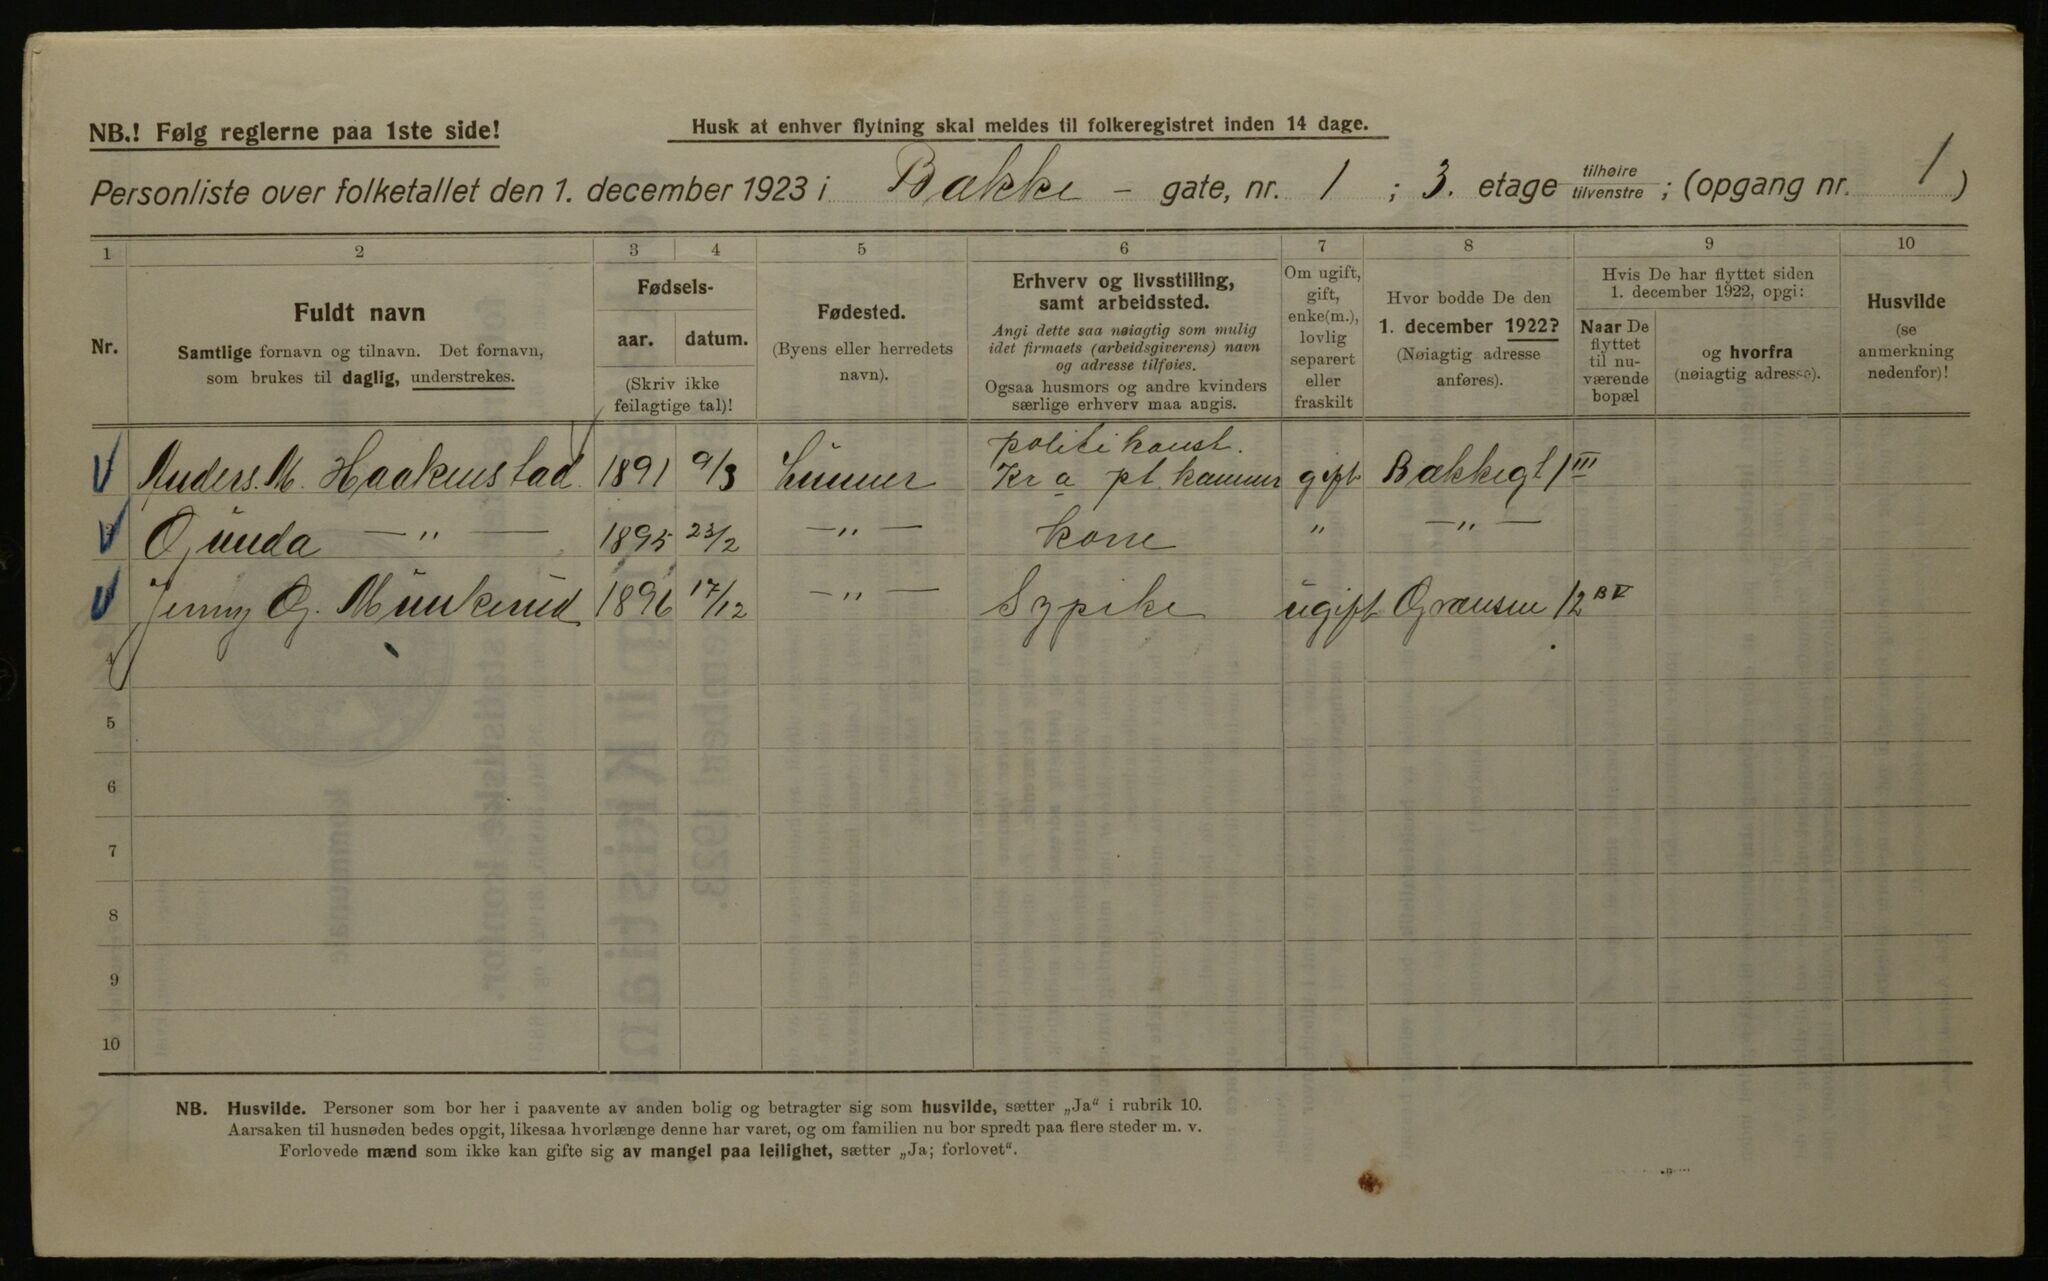 NB.! Følg reglerne paa 1ste side!
Husk at enhver flytning skal meldes til folkeregistret inden 14 dage.
Personliste over folketallet den 1. december 1923 i Bakke - gate, nr. 1 ; 3. etage tilhøire tilvenstre ; (opgang nr. 1 )
1 2 3 4 5 6 7 8 9 10
Nr.
Fuldt navn
Samtlige fornavn og tilnavn. Det fornavn,
som brukes til daglig, understrekes.
Fødsels-
aar. datum.
(Skriv ikke
feilagtige tal)!
Fødested.
(Byens eller herredets
navn).
Erhverv og livsstilling,
samt arbeidssted.
Angi dette saa nøiagtig som mulig
idet firmaets (arbeidsgiverens) navn
og adresse tilføies.
Ogsaa husmors og andre kvinders
særlige erhverv maa angis.
Om ugift,
gift,
enke(m.),
lovlig
separert
eller
fraskilt
Hvor bodde De den
1. december 1922?
(Nøiagtig adresse
anføres).
Hvis De har flyttet siden
1. december 1922, opgi:
Naar De
flyttet
til nu-
værende
bopæl
og hvorfra
(nøiagtig adresse).
Husvilde
(se
anmerkning
nedenfor)!
politikonst.
Anders. M. Haakenstad 1891 9/3 Lunner Kr a pt. kammer gift Bakkegt 1 III
Gunda —„— 1895 23/2 —„— kone „ —„—
Jenny G. Munkerud 1896 17/12 —„— Sypike ugift Grænsen 12 B V
4
5
6
7
8
9
10
NB. Husvilde. Personer som bor her i paavente av anden bolig og betragter sig som husvilde, sætter „Ja“ i rubrik 10.
Aarsaken til husnøden bedes opgit, likesaa hvorlænge denne har varet, og om familien nu bor spredt paa flere steder m. v.
Forlovede mænd som ikke kan gifte sig av mangel paa leilighet, sætter „Ja; forlovet“.